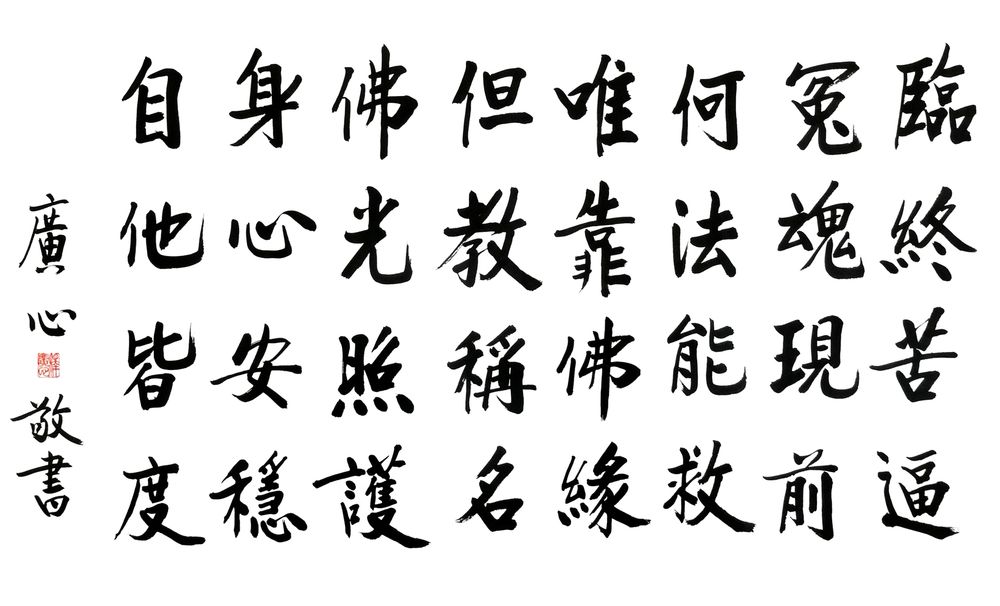 臨終苦逼
冤魂現前
何法能救
唯靠佛緣
但教稱名
佛光照護
身心安穩
自他皆度
廣心 敬書